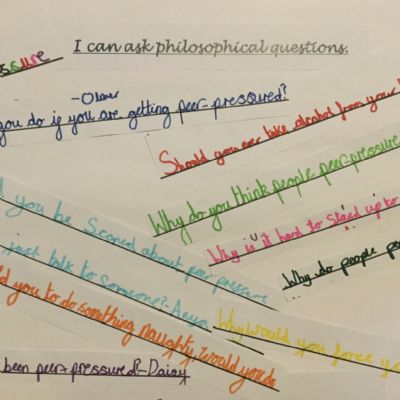 I can ask philosophical questions.
ssure
-Oliver
you do if you are getting peer-pressured?
Should you ever take alcohol from your
Why do you think people peer-pressure
you be Scared about peer pressure
Why is it hard to Stand up to
just talk to Someone?-Anya
Why do people
you to do something naughty, would you do
Why would you force
been peer-pressured?-Daisy